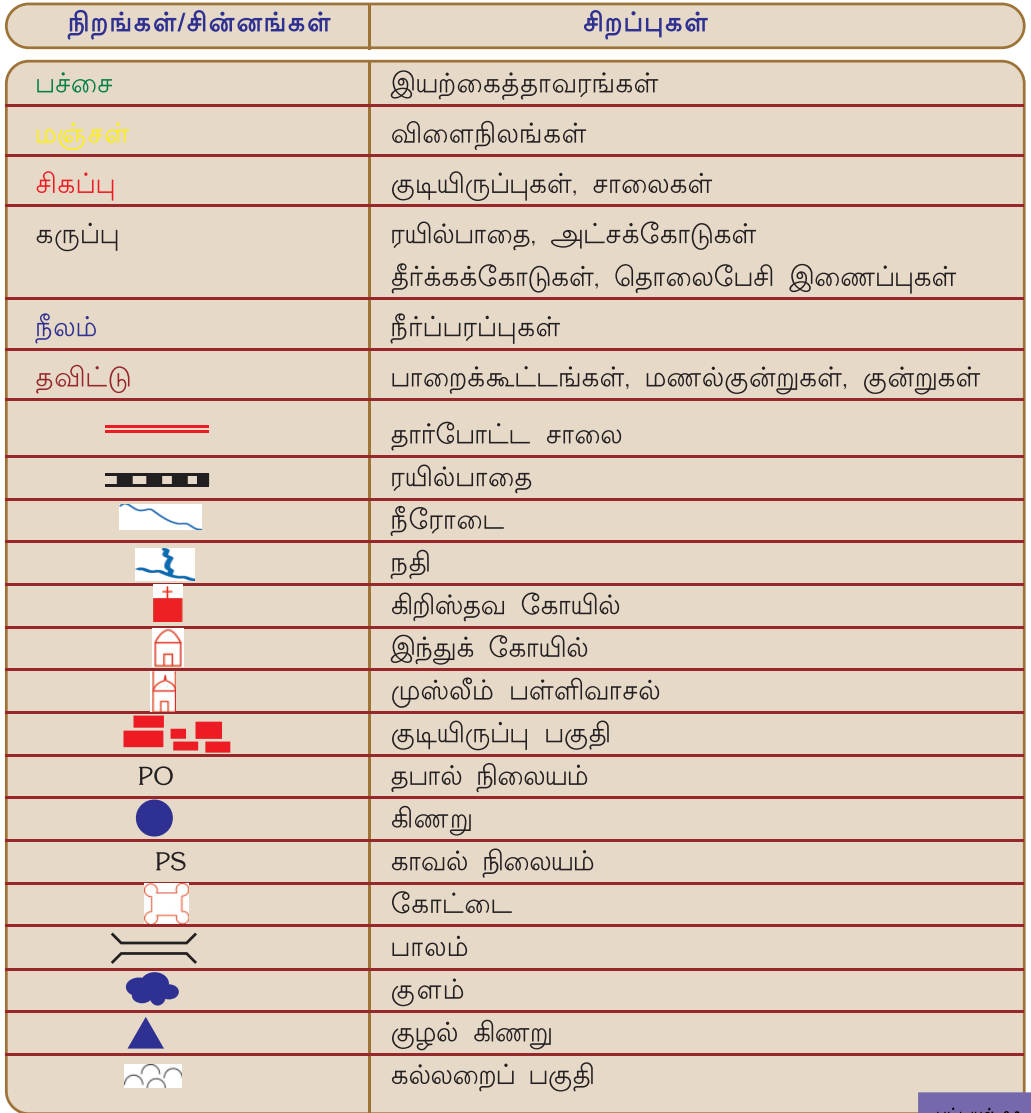 நிறங்கள்/சின்னங்கள் சிறப்புகள்
பச்சை இயற்கைத்தாவரங்கள்
மஞ்சள் விளைநிலங்கள்
சிகப்பு குடியிருப்புகள், சாலைகள்
கருப்பு ரயில்பாதை, அட்சக்கோடுகள்
தீர்க்கக்கோடுகள், தொலைபேசி இணைப்புகள்
நீலம் நீர்ப்பரப்புகள்
தவிட்டு பாறைக்கூட்டங்கள், மணல்குன்றுகள், குன்றுகள்
தார்போட்ட சாலை
ரயில்பாதை
நீரோடை
நதி
கிறிஸ்தவ கோயில்
இந்துக் கோயில்
முஸ்லீம் பள்ளிவாசல்
குடியிருப்பு பகுதி
PO தபால் நிலையம்
கிணறு
PS காவல் நிலையம்
கோட்டை
பாலம்
குளம்
குழல் கிணறு
கல்லறைப் பகுதி